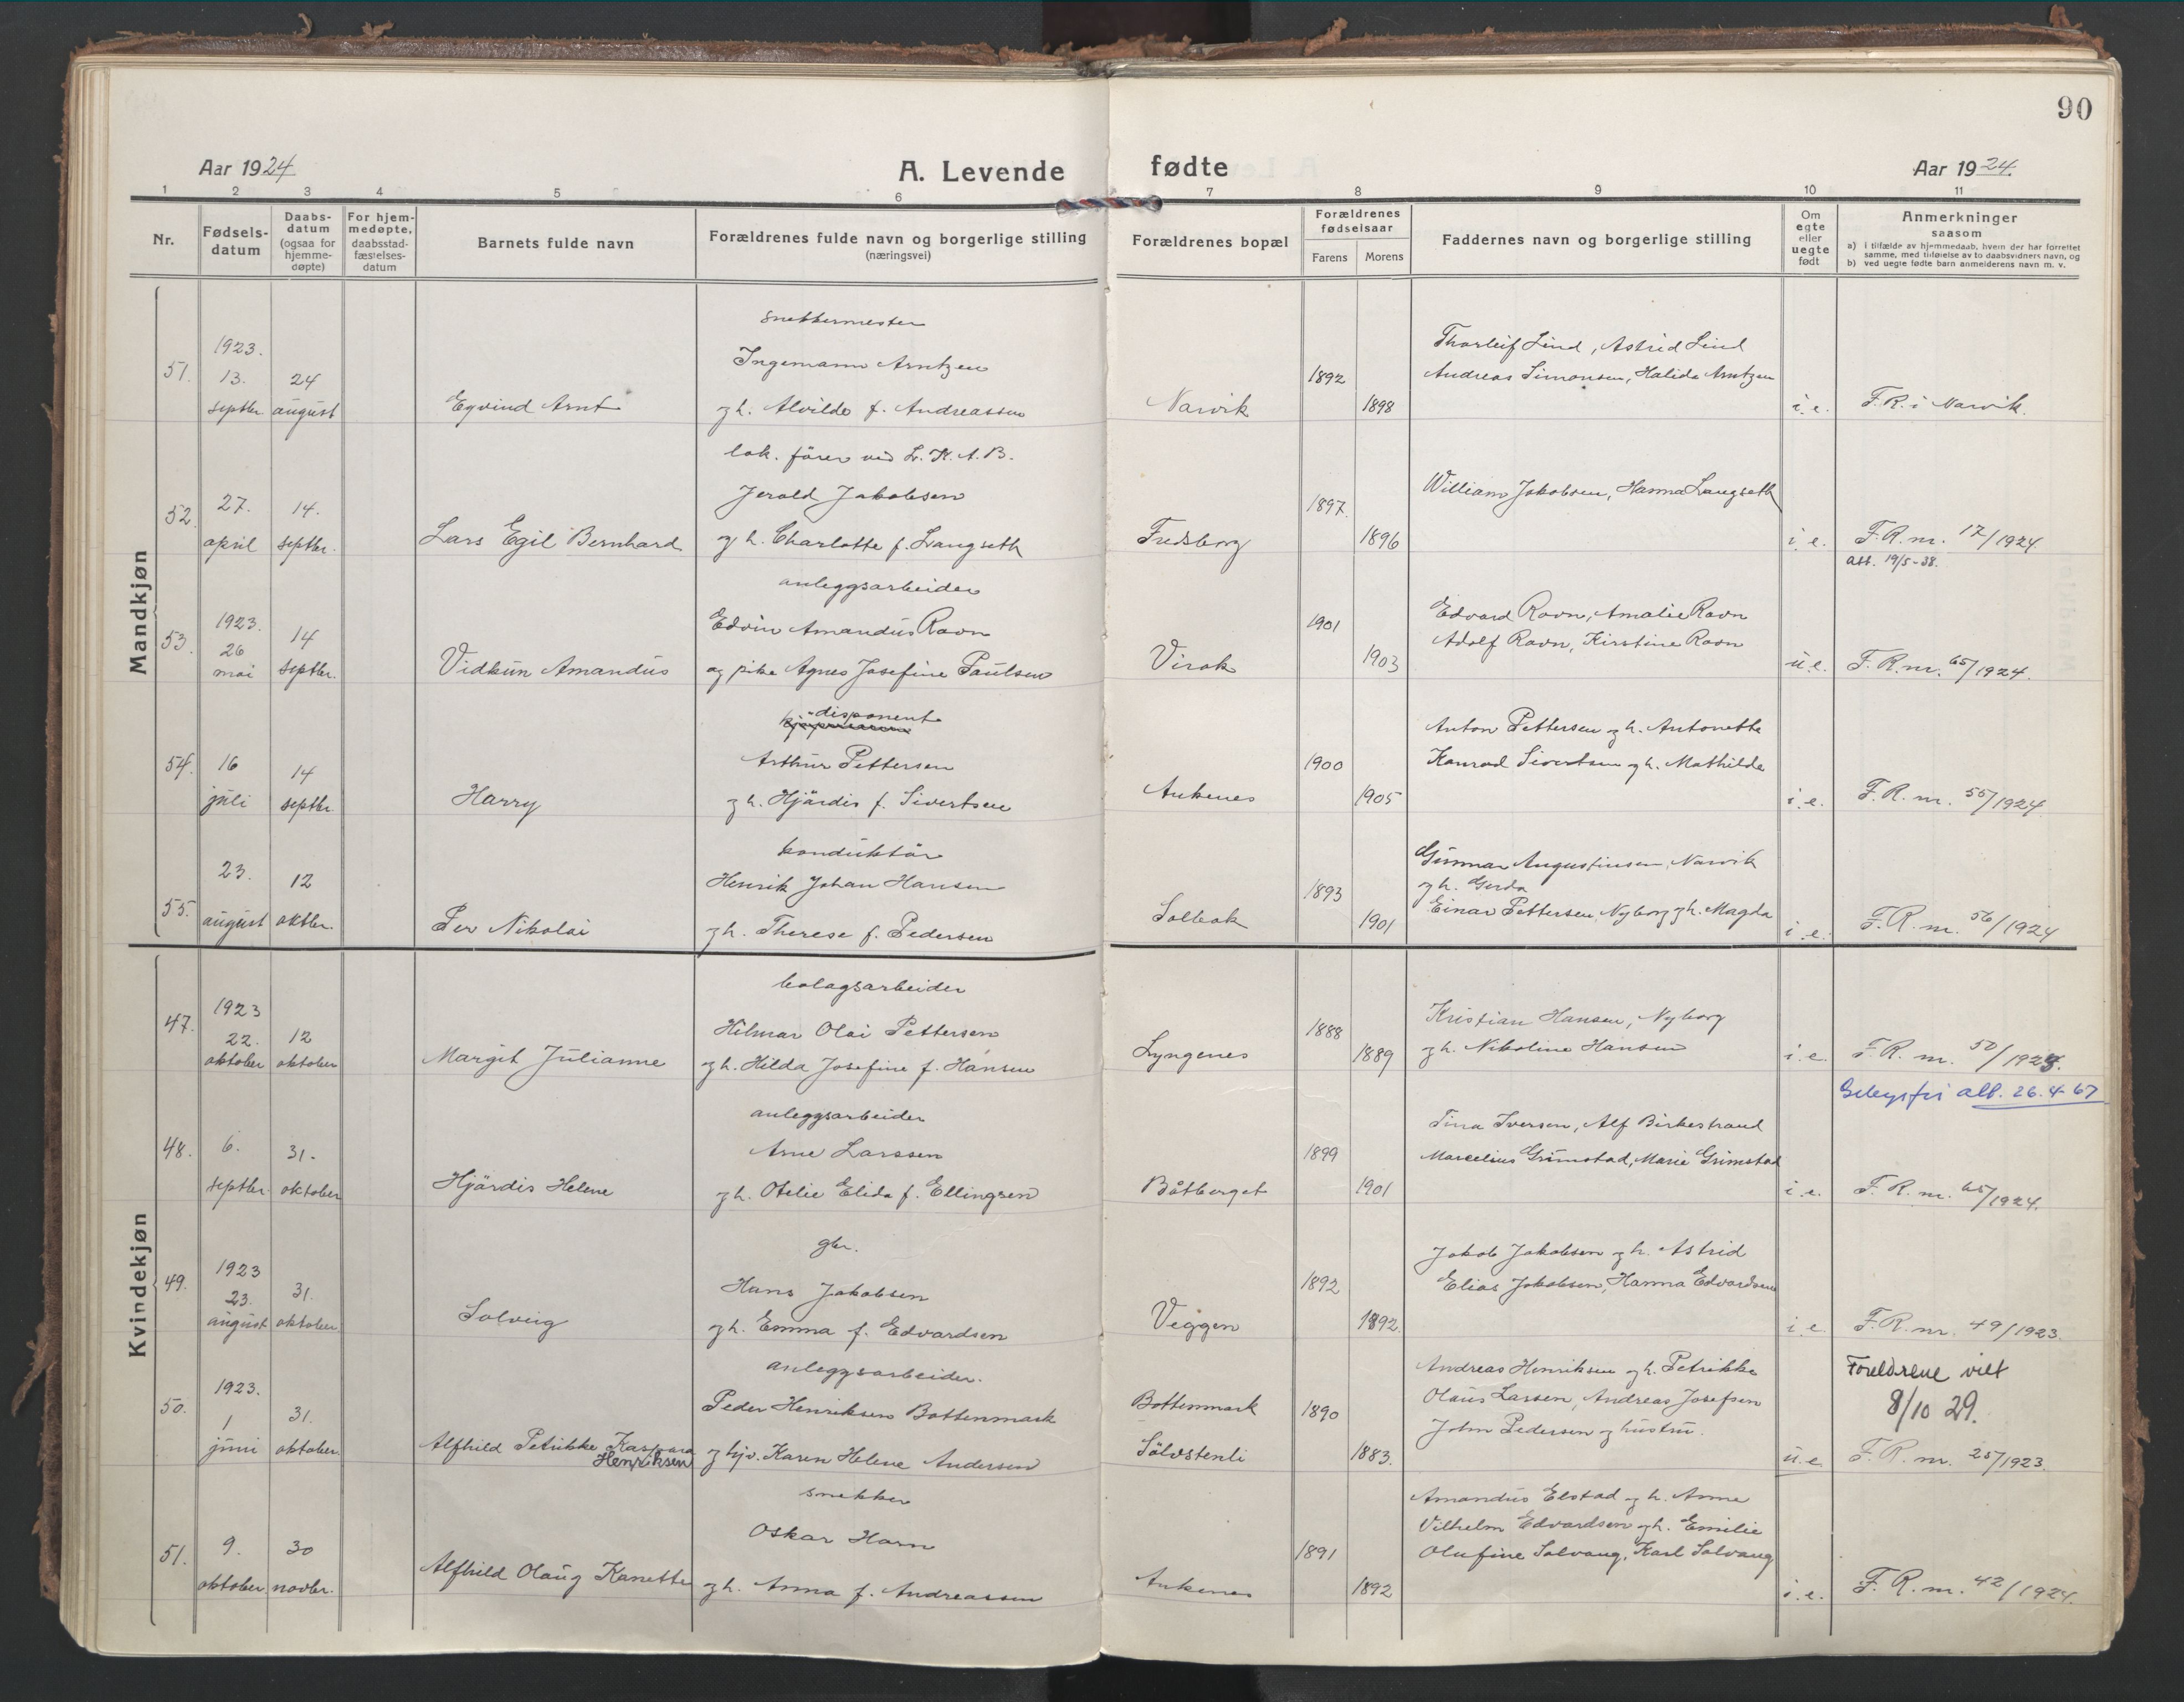 90
Aar 1924
A. Levende fødte
Aar 1924.
1 2 3 4 5 6 7 8 9 10 11
Nr.
Fødsels-
datum
Daabs-
datum
(ogsaa for
hjemme-
døpte)
For hjem-
medøpte,
daabsstad-
fæstelses-
datum
Barnets fulde navn
Forældrenes fulde navn og borgerlige stilling
(næringsvei)
Forældrenes bopæl
Forældrenes
fødselsaar
Farens Morens
Faddernes navn og borgerlige stilling
Om
egte
eller
uegte
født
Anmerkninger
saasom
a) i tilfælde av hjemmedaab, hvem der har forrettet
samme, med tilføielse av to daabsvidners navn, og
b) ved uegte fødte barn anmelderens navn m. v.
Mandkjøn
51.
1923.
13.
septbr
24
august
Eyvind Arnt
snekkermester
Ingemann Arntzen
og h. Alvilde f. Andreassen
Narvik
1892
1898
Thorleif Lind, Astrid Lind
Andreas Simonsen, Halide Arntzen
i. e.
F. R. i Narvik.
52.
27.
april
14.
septbr.
Lars Egil Bernhard
lok. fører ved L. K. A. B.
Jerold Jakobsen
og h. Charlotte f. Langseth
Fredsborg
1897.
1896
William Jakobsen, Hanna Langseth
i. e.
F. R. nr. 17/1924.
att. 19/5-38.
53.
1923.
26
mai
14
septbr.
Vidkun Amandus
anleggsarbeider
Edvin Amandus Ravn
og pike Agnes Josefine Paulsen
Virak
1901
1903
Edvard Ravn, Amalie Ravn
Adolf Ravn, Kirstine Ravn
u. e.
F. R. nr. 65/1924.
54.
16
juli
14
septbr.
Harry
disponent
Arthur Pettersen
og h. Hjårdis f. Sivertsen
Ankenes
1900
1905
Anton Pettersen og h. Antonette
Konrad Sivertsen og h. Mathilde
i. e.
F. R. nr. 55/1924
55.
23.
august
12
oktbr.
Per Nikolai
konduktør
Henrik Johan Hansen
og h. Therese f. Pedersen
Solbak
1893
1901
Gunnar Augustinsen, Narvik
og h. Gerda
Einar Pettersen, Nyborg og h. Magda
i. e.
F. R. nr. 56/1924
Kvindekjøn
47.
1923
22.
oktober
12
oktober
Margit Julianne
bolagsarbeider
Hilmar Olai Pettersen
og h. Hilda Josefine f. Hansen
Lyngenes
1888
1889
Kristian Hansen, Nyborg
og h. Nikoline Hansen
i. e.
F. R. nr. 50/1923.
Gebyrfri att. 26.4-67
48.
6.
septbr.
31.
oktober
Hjårdis Helene
anleggsarbeider
Arne Larssen
og h. Otelie Elida f. Ellingsen
Båtberget
1899
1901
Tina Iversen, Alf Birkestrand
Marcelius Grimstad, Marie Grimstad
i. e.
F. R. nr. 65/1924.
49.
1923
23.
august
31.
oktober
Solveig
gbr.
Hans Jakobsen
og h. Emma f. Edvardsen
Veggen
1892
1892.
Jakob Jakobsen og h. Astrid
Elias Jakobsen, Hanna Edvardsen
i. e.
F. R. nr. 49/1923.
50.
1923.
1
juni
31.
oktober
Alfhild Petrikke Kaspara
Henriksen
anleggsarbeider.
Peder Henriksen Bottenmark
og hjv. Karen Helene Andersen
Bottenmark
Sølvstenli
1890
1883.
Andreas Henriksen og h. Petrikke
Olaus Larsen, Andreas Josefsen
John Pedersen og hustru.
u. e.
Foreldrene viet
8/10 29.
F. R. nr. 25/1923.
51.
9.
oktober
30
novbr.
Alfhild Olaug Kanette
snekker
Oskar Harn
og h. Anna f. Andreassen
Ankenes
1891
1892
Amandus Elstad og h. Anne
Vilhelm Edvardsen og h. Emilie
Olufine Solvang, Karl Solvang
i. e.
F. R. nr. 42/1924.